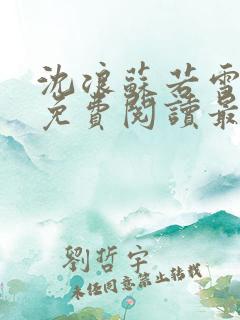 沈浪蘇若雪
免費閱讀最
劉哲宇
未經同意禁止轉載